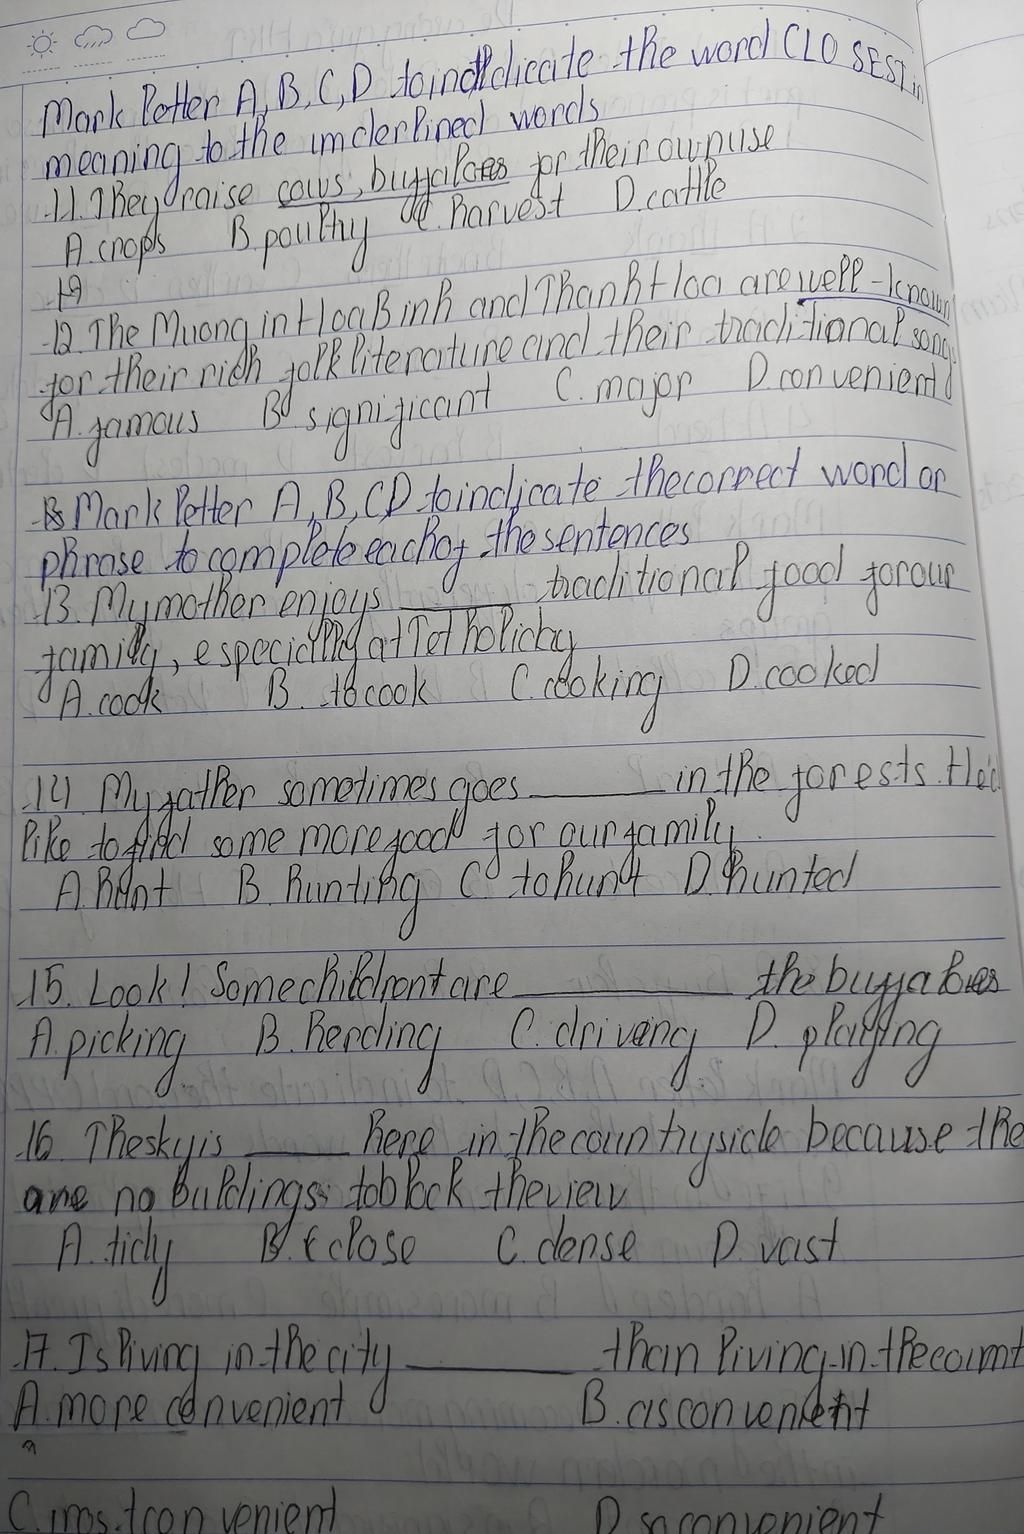 Mark letter A, B, C, D to indicate the word CLOSEST in
meaning to the underlined words
11. They raise cows, buffaloes for their own use
A. crops B. poultry C. harvest D. cattle
19
12. The Muong in Hoa Binh and Thanh Hoa are well-known
for their rich folk literature and their traditional songs
A. famous B. significant C. major D. convenient
Mark letter A, B, C, D to indicate the correct word or
phrase to complete each of the sentences
13. My mother enjoys ______ traditional food for our
family, especially at Tet holiday
A. cook B. to cook C. cooking D. cooked
14 My father sometimes goes ______ in the forests. He
like to find some more food for our family.
A. hunt B. hunting C. to hunt D. hunted
15. Look! Some children are ______ the buffaloes
A. picking B. herding C. driving D. playing
16 The sky is ______ here in the countryside because the
are no buildings to block the view
A. tidy B. close C. dense D. vast
17. Is living in the city ______ than living in the count
A. more convenient B. as convenient
C. most convenient D. so convenient